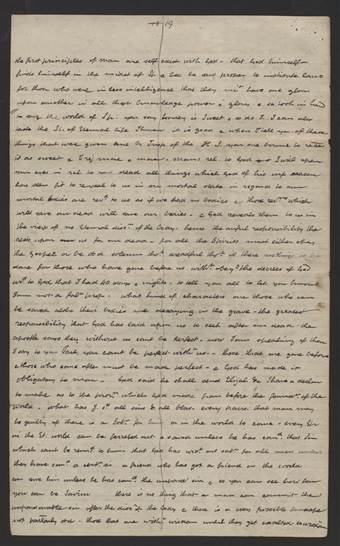 19
the first principles of man are self exist with God – that God himself
finds himself in the midst of & because proper to institute laws
for those who were in less intelligence that they mi. have one glory
upon another in all that knowledge power & glory & so took in hand
to save the world of Sp: you say honey is Sweet & so do I. I can also
taste the Sp. of eternal life I know it is good & when I tell you of these
things that were given me by Insp of the H S. you are bound to receive
it as sweet & I rej more &
man rel. to God & I will open
your eyes in rel to dead all things which God of his inf reason
has seen fit to reveal to us in our mortal state in regard to our
mortal bodies are rev. to us as if we had no bodies & those rev. which
will save our dead will save our bodies. & God reveals them to us in
the view of no eternal dis: of the body. hence the awful responsibility that
rests upon us for our dead – for all the Spirits must either obey
the Gospel or be damned solemn tho. dreadful tho. is there nothing to be
done for those who have gone before us with. obey. the decrees of God
wo. to God that I had 40 days & nights to tell you all to let you know
I am not a fal. prop. what kind of characters are those who can
be saved altho their bodies are decaying in the grave – the greatest
responsibility that God has laid upon us to seek after our dead – the
apostle says they without us cant be perfect. now I am speaking of them
I say to you Paul, you cant be perfect with us. those that are gone before
& those who come after must be made perfect – & God has made it
obligatory to man. God said he shall send Elijah & I have a declon
to make as to the prov. which God made from before the foundn of the
world. what has J. sd all sins & all blas. every sin that man may
be guilty of there is a in or in the world to come – every Sp
in the Et. world can be ferreted out & saved unless he has com. that Sin
which cant be rem. to him. that God has wro. out sal: for all men unless
they have com. a cert. sin. a friend who has got a friend in the world
can save him unless he has com. the unpard sin & so you can see how far
you can be Savior there is no thing that a man can commit the
unpardonable sin after the diss: of the body & there is a way possible for escape
not particularly those that are with. wisdom until they get exalted to wisdom